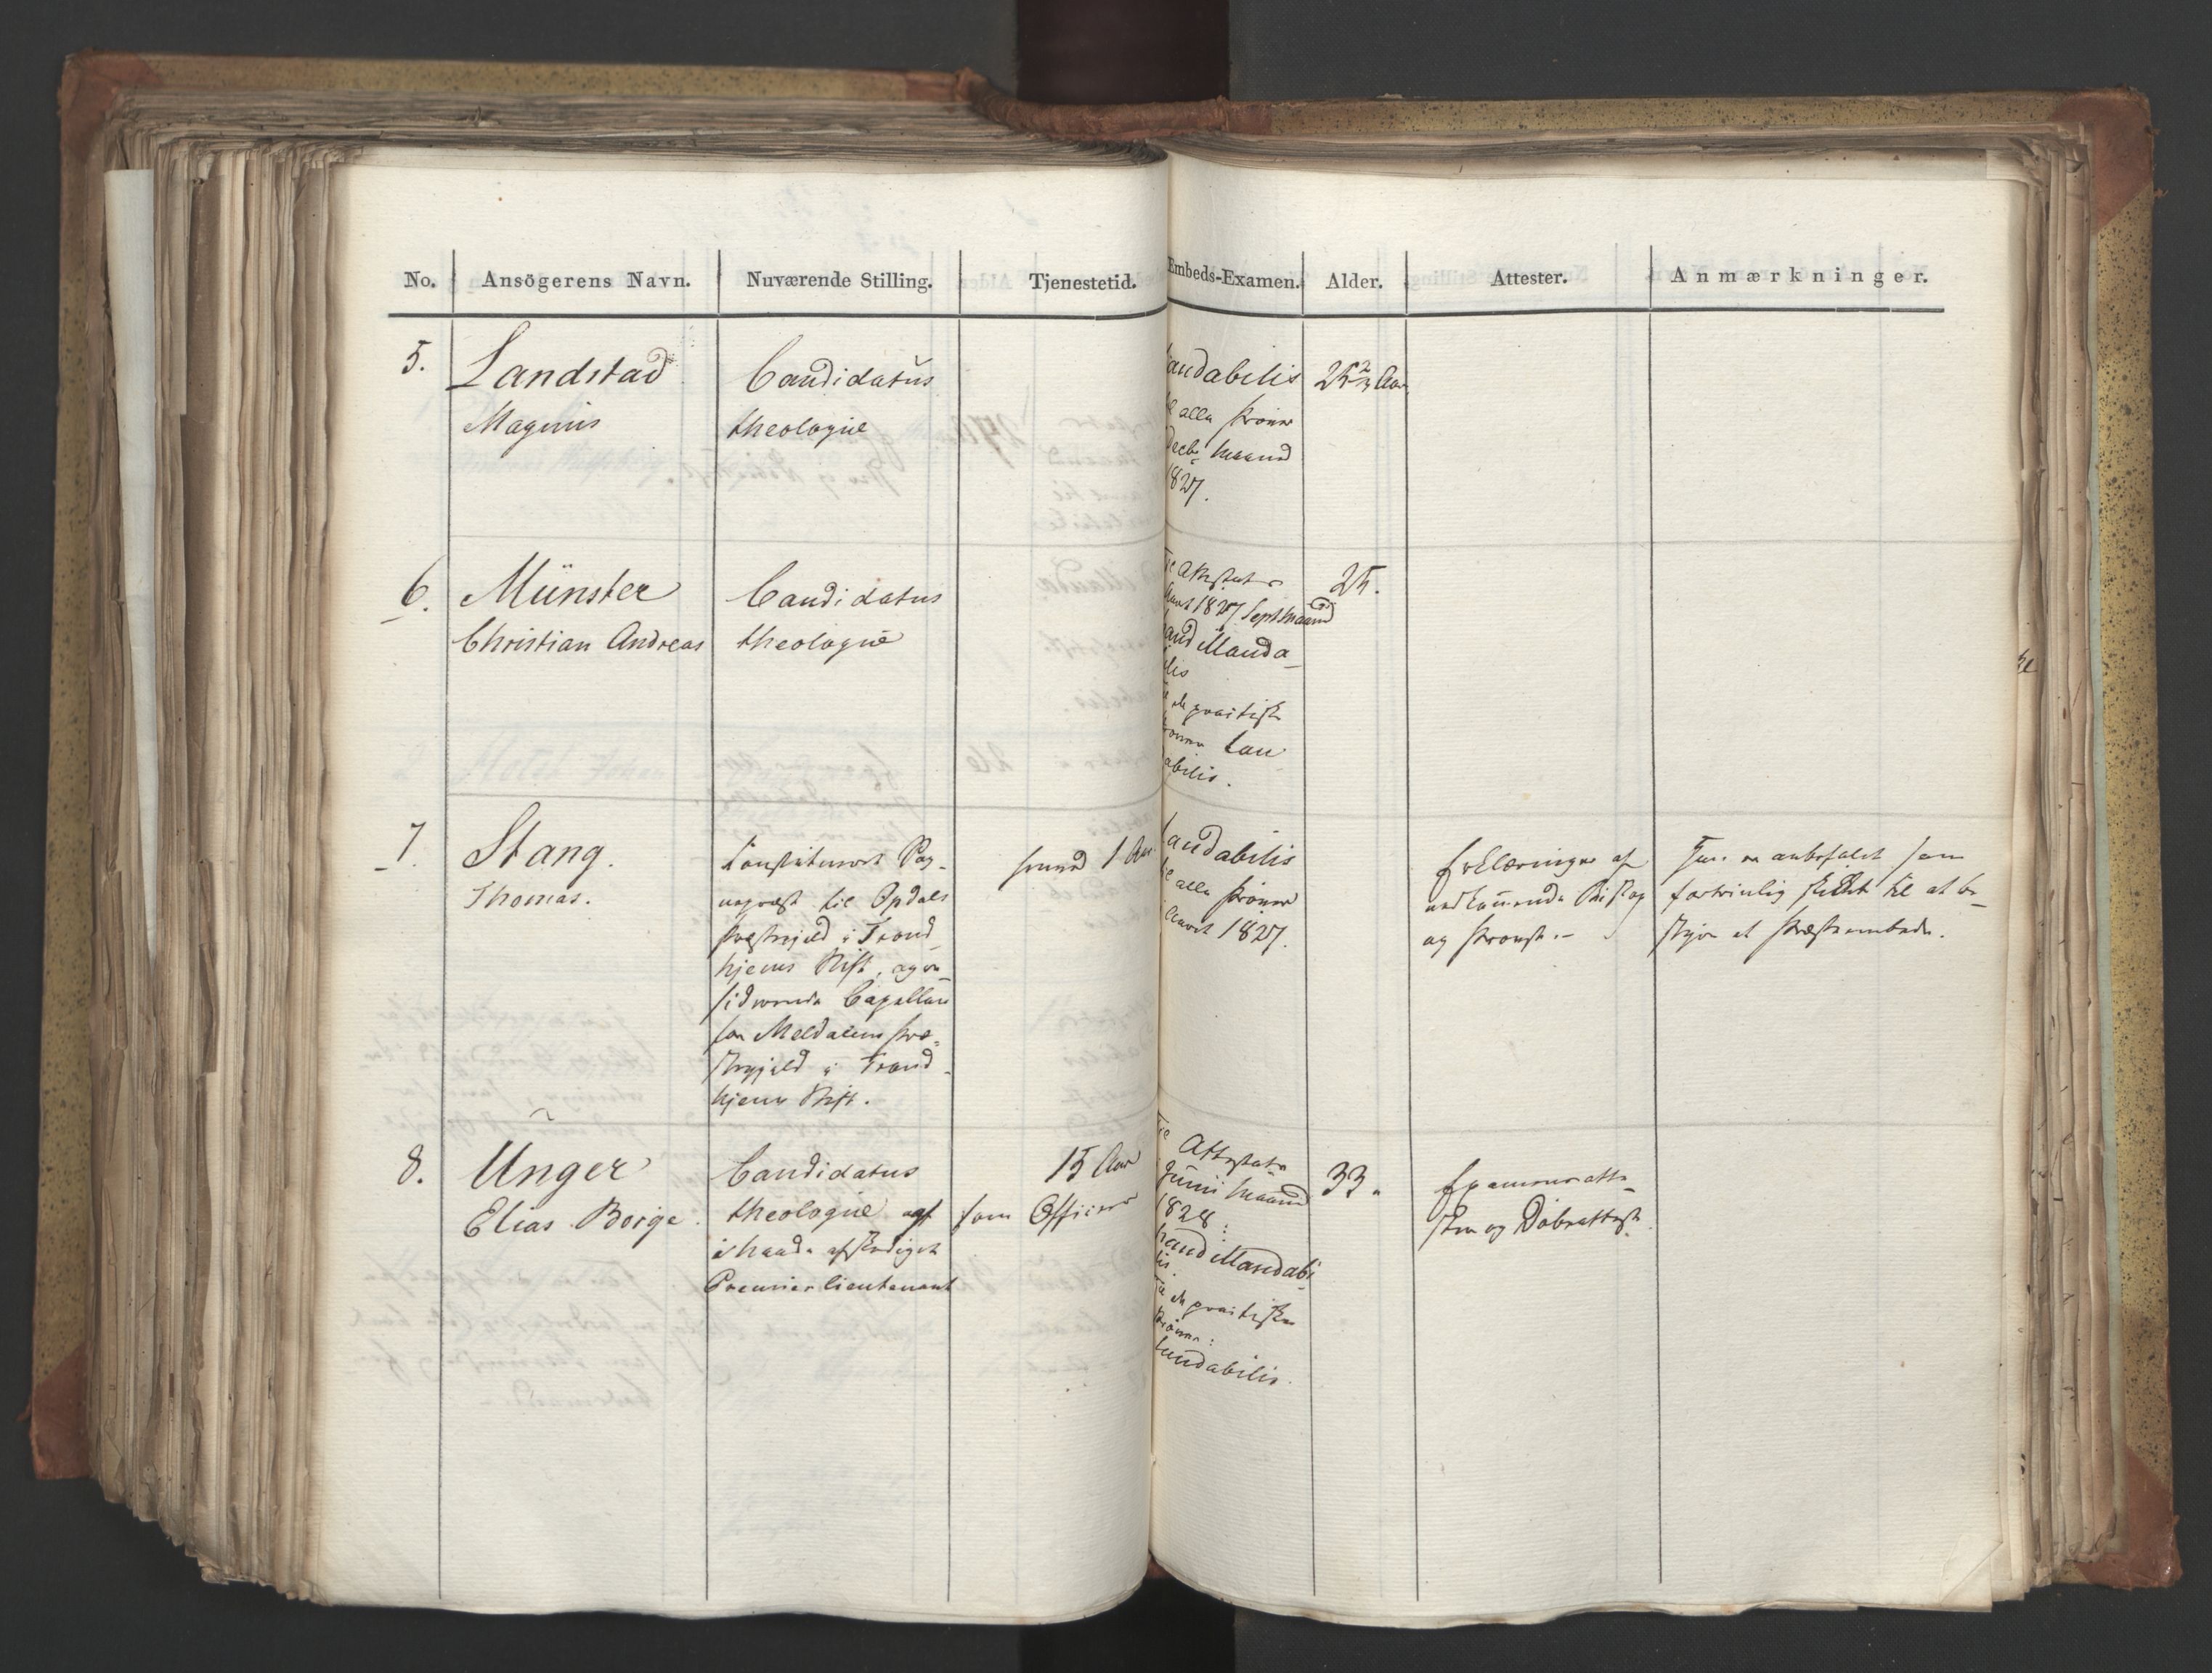 No. Ansögerens Navn. Nuværende Stilling. Tjenestetid. Embeds-Examen. Alder. Attester. Anmærkninger.
5.
Landstad
Magnus
Candidatus
theologiæ
audabilis
alle Prøver
Decbr Maaned
1827.
25 2/3 Aar
6.
Münster
Christian Andreas
Candidatus
theologiæ
Attestats
Aaret 1827 Sept Maaned
aud illauda-
ilis
praktisk
Lau
abilis.
25.
7.
Stang.
Thomas.
Constitueret Sog-
nepræst til Opdals
Præstegjeld i Trond-
hjems Stift, og re-
siderende Capellan
for Meldalens Præ-
stegjeld i Trond-
hjems Stift.
1 Aar
Laudabilis
alle Prøver
Aaret 1827.
Erklæringer af
vedkommende Biskop
og Provst.-
anbefalet som
fortrinlig skikket til at be-
styre et Præsteembede.
8.
Unger
Elias Borge.
Candidatus
theologiæ og
i Naade afskediget
Premierlieutenant
15 Aar
som Officer
Attestats
Junii Maaned
1828:
haud illaudabi
lis.
praktiske
Prøve:
laudabilis.
33.
Examensatte-
ster og Døbeattest.